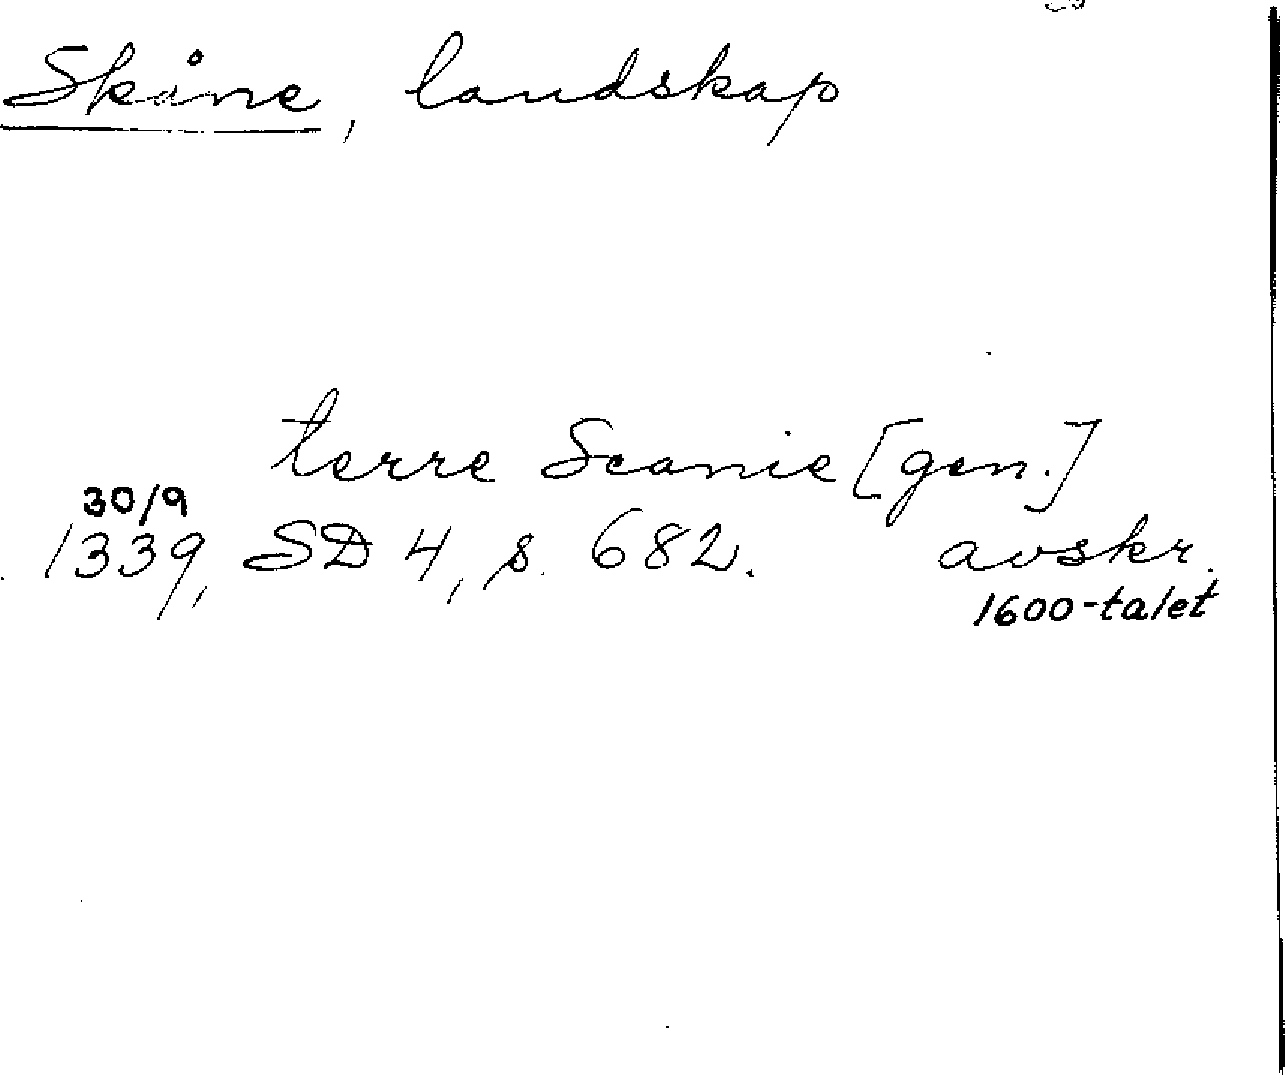 Skåne, landskap
terre Scanie [gen.]
30/9
1339, SD 4, s. 682. avskr.
1600-talet